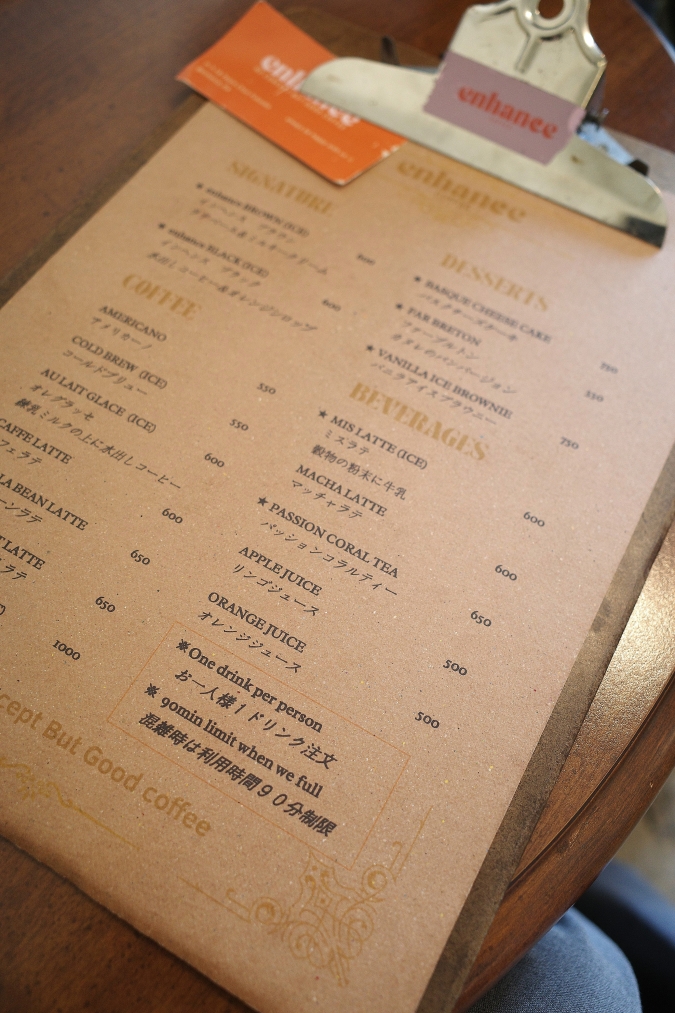 enhanee
enhanee
enhanee
SIGNATURE
★ enhanee BROWN (ICE)
インヘンス ブラウン
★ enhanee BLACK (ICE)
インヘンス ブラック
水出しコーヒー&オレンジシロップ
600
COFFEE
AMERICANO
アメリカーノ
550
COLD BREW (ICE)
コールドブリュー
550
AU LAIT GLACE (ICE)
オレグラッセ
練乳ミルクの上に水出しコーヒー
600
CAFFE LATTE
フェラテ
600
LA BEAN LATTE
ーンラテ
650
T LATTE
ラテ
650
1000
DESSERTS
★ BASQUE CHEESE CAKE
バスクチーズケーキ
750
★ FAR BRETON
ファーブルトン
550
★ VANILLA ICE BROWNIE
バニラアイスブラウニー
750
BEVERAGES
★ MIS LATTE (ICE)
ミスラテ
穀物の粉末に牛乳
600
MACHA LATTE
マッチャラテ
600
★ PASSION CORAL TEA
パッションコラルティー
650
APPLE JUICE
リンゴジュース
500
ORANGE JUICE
オレンジジュース
500
※One drink per person
お一人様1ドリンク注文
※ 90min limit when we full
混雑時は利用時間90分制限
cept But Good coffee